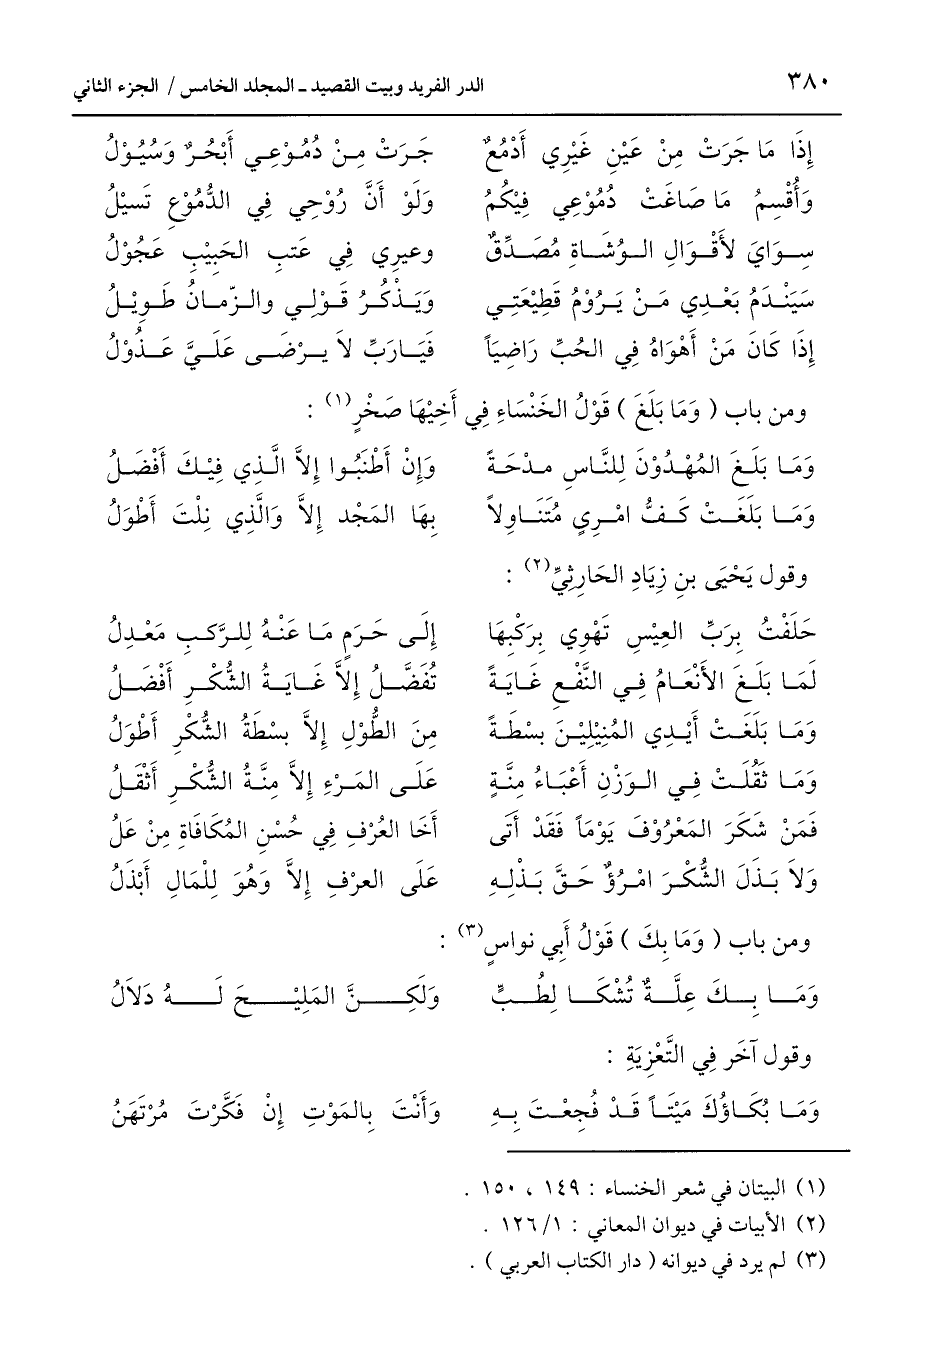 ٣٨٠ الدر الفريد وبيت القصيد ـ المجلد الخامس / الجزء الثاني
إِذَا مَا جَرَتْ مِنْ عَيْنِ غَيْرِي أَدْمُعٌ جَرَتْ مِنْ دُمُوْعِي أَبْحُرٌ وَسُيُوْلُ
وَأُقْسِمُ مَا صَاغَتْ دُمُوْعِي فِيْكُمُ وَلَوْ أَنَّ رُوْحِي فِي الدُّمُوْعِ تَسيْلُ
سِوَايَ لأَقْوَالِ الوُشَاةِ مُصَدِّقٌ وغيري فِي عَتبِ الحَبِيْبِ عَجُوْلُ
سَيَنْدَمُ بَعْدِي مَنْ يَرُوْمُ قَطِيْعَتِي وَيَذْكُرُ قَوْلِي والزّمانُ طَوِيْلُ
إِذَا كَانَ مَنْ أَهْوَاهُ فِي الحُبِّ رَاضِيَاً فَيَارَبِّ لاَ يرْضَى عَلَيَّ عَذُوْلُ
ومن باب ( وَمَا بَلَغَ ) قَوْلُ الخَنْسَاءِ فِي أَخِيْهَا صَخْرٍ(١) :
وَمَا بَلَغَ المُهْدُوْنَ لِلنَّاسِ مدْحَةً وَإِنْ أَطْنَبُوا إِلاَّ الَّذِي فِيْكَ أَفْضَلُ
وَمَا بَلَغَتْ كَفُّ امْرِيٍ مُتَنَاوِلاً بِهَا المَجْد إِلاَّ وَالَّذِي نِلْتَ أَطْوَلُ
وقول يَحْيَى بنِ زِيَادِ الحَارثِيِّ(٢) :
حَلَفْتُ بِرَبِّ العِيْسِ تَهْوِي بِرَكْبِهَا إِلَى حَرَمٍ مَا عَنْهُ لِلرَّكبِ مَعْدِلُ
لَمَا بَلَغَ الأَنْعَامُ فِي النَّفْعِ غَايَةً تُفَضَّلُ إِلاَّ غَايَةُ الشُّكْرِ أَفْضَلُ
وَمَا بَلَغَتْ أَيْدِي المُنِيْلِيْنَ بسْطَةً مِنَ الطُّوْلِ إِلاَّ بسْطَةُ الشُّكْرِ أَطْوَلُ
وَمَا ثَقُلَتْ فِي الوَزْنِ أَعْبَاءُ مِنَّةٍ عَلَى المَرْءِ إِلاَّ مِنَّةُ الشُّكْرِ أَثْقَلُ
فَمَنْ شَكَرَ المَعْرُوْفَ يَوْمَاً فَقَدْ أَتَى أَخَا العُرْفِ فِي حُسْنِ المُكَافَاةِ مِنْ عَلُ
وَلاَ بَذَلَ الشُّكْرَ امْرُؤٌ حَقَّ بَذْلِهِ عَلَى العرْفِ إِلاَّ وَهُوَ لِلْمَالِ أَبْذَلُ
ومن باب ( وَمَا بِكَ ) قَوْلُ أَبِي نواسٍ(٣) :
وَمَا بِكَ عِلَّةٌ تُشْكَا لِطُبٍّ وَلَكِنَّ المَلِيْحَ لَهُ دَلاَلُ
وقول آخَر فِي التَّعْزِيَةِ :
وَمَا بُكَاؤُكَ مَيْتَاً قَدْ فُجِعْتَ بِهِ وَأَنْتَ بِالمَوْتِ إِنْ فَكَّرْتَ مُرْتَهَنُ
(١) البيتان في شعر الخنساء : ١٤٩ ، ١٥٠ .
(٢) الأبيات في ديوان المعاني : ١/ ١٢٦ .
(٣) لم يرد في ديوانه ( دار الكتاب العربي ) .